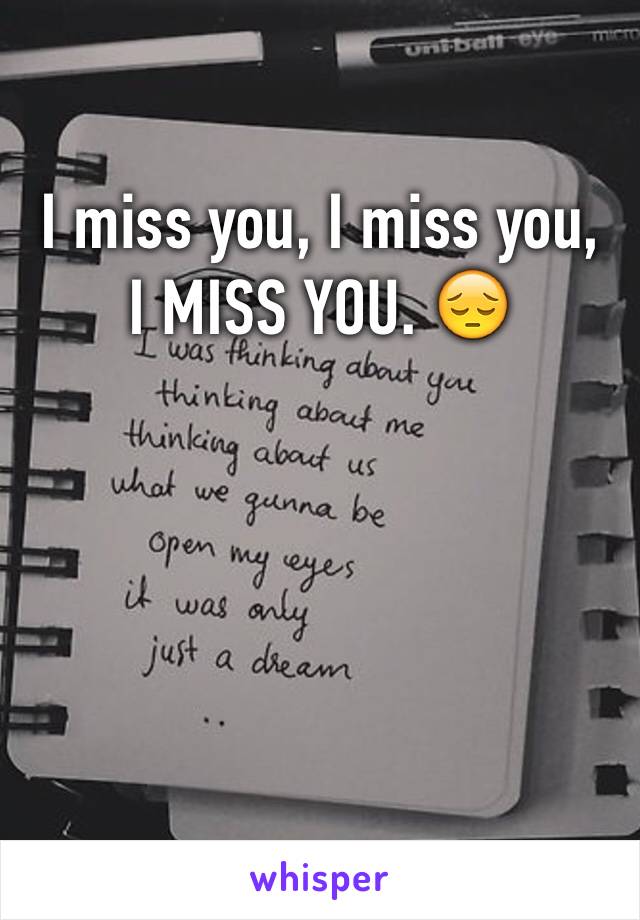 uni-ball eye micro
I miss you, I miss you,
I MISS YOU. 😔
I was thinking about you
thinking about me
thinking about us
what we gunna be
open my eyes
it was only
just a dream
..
whisper